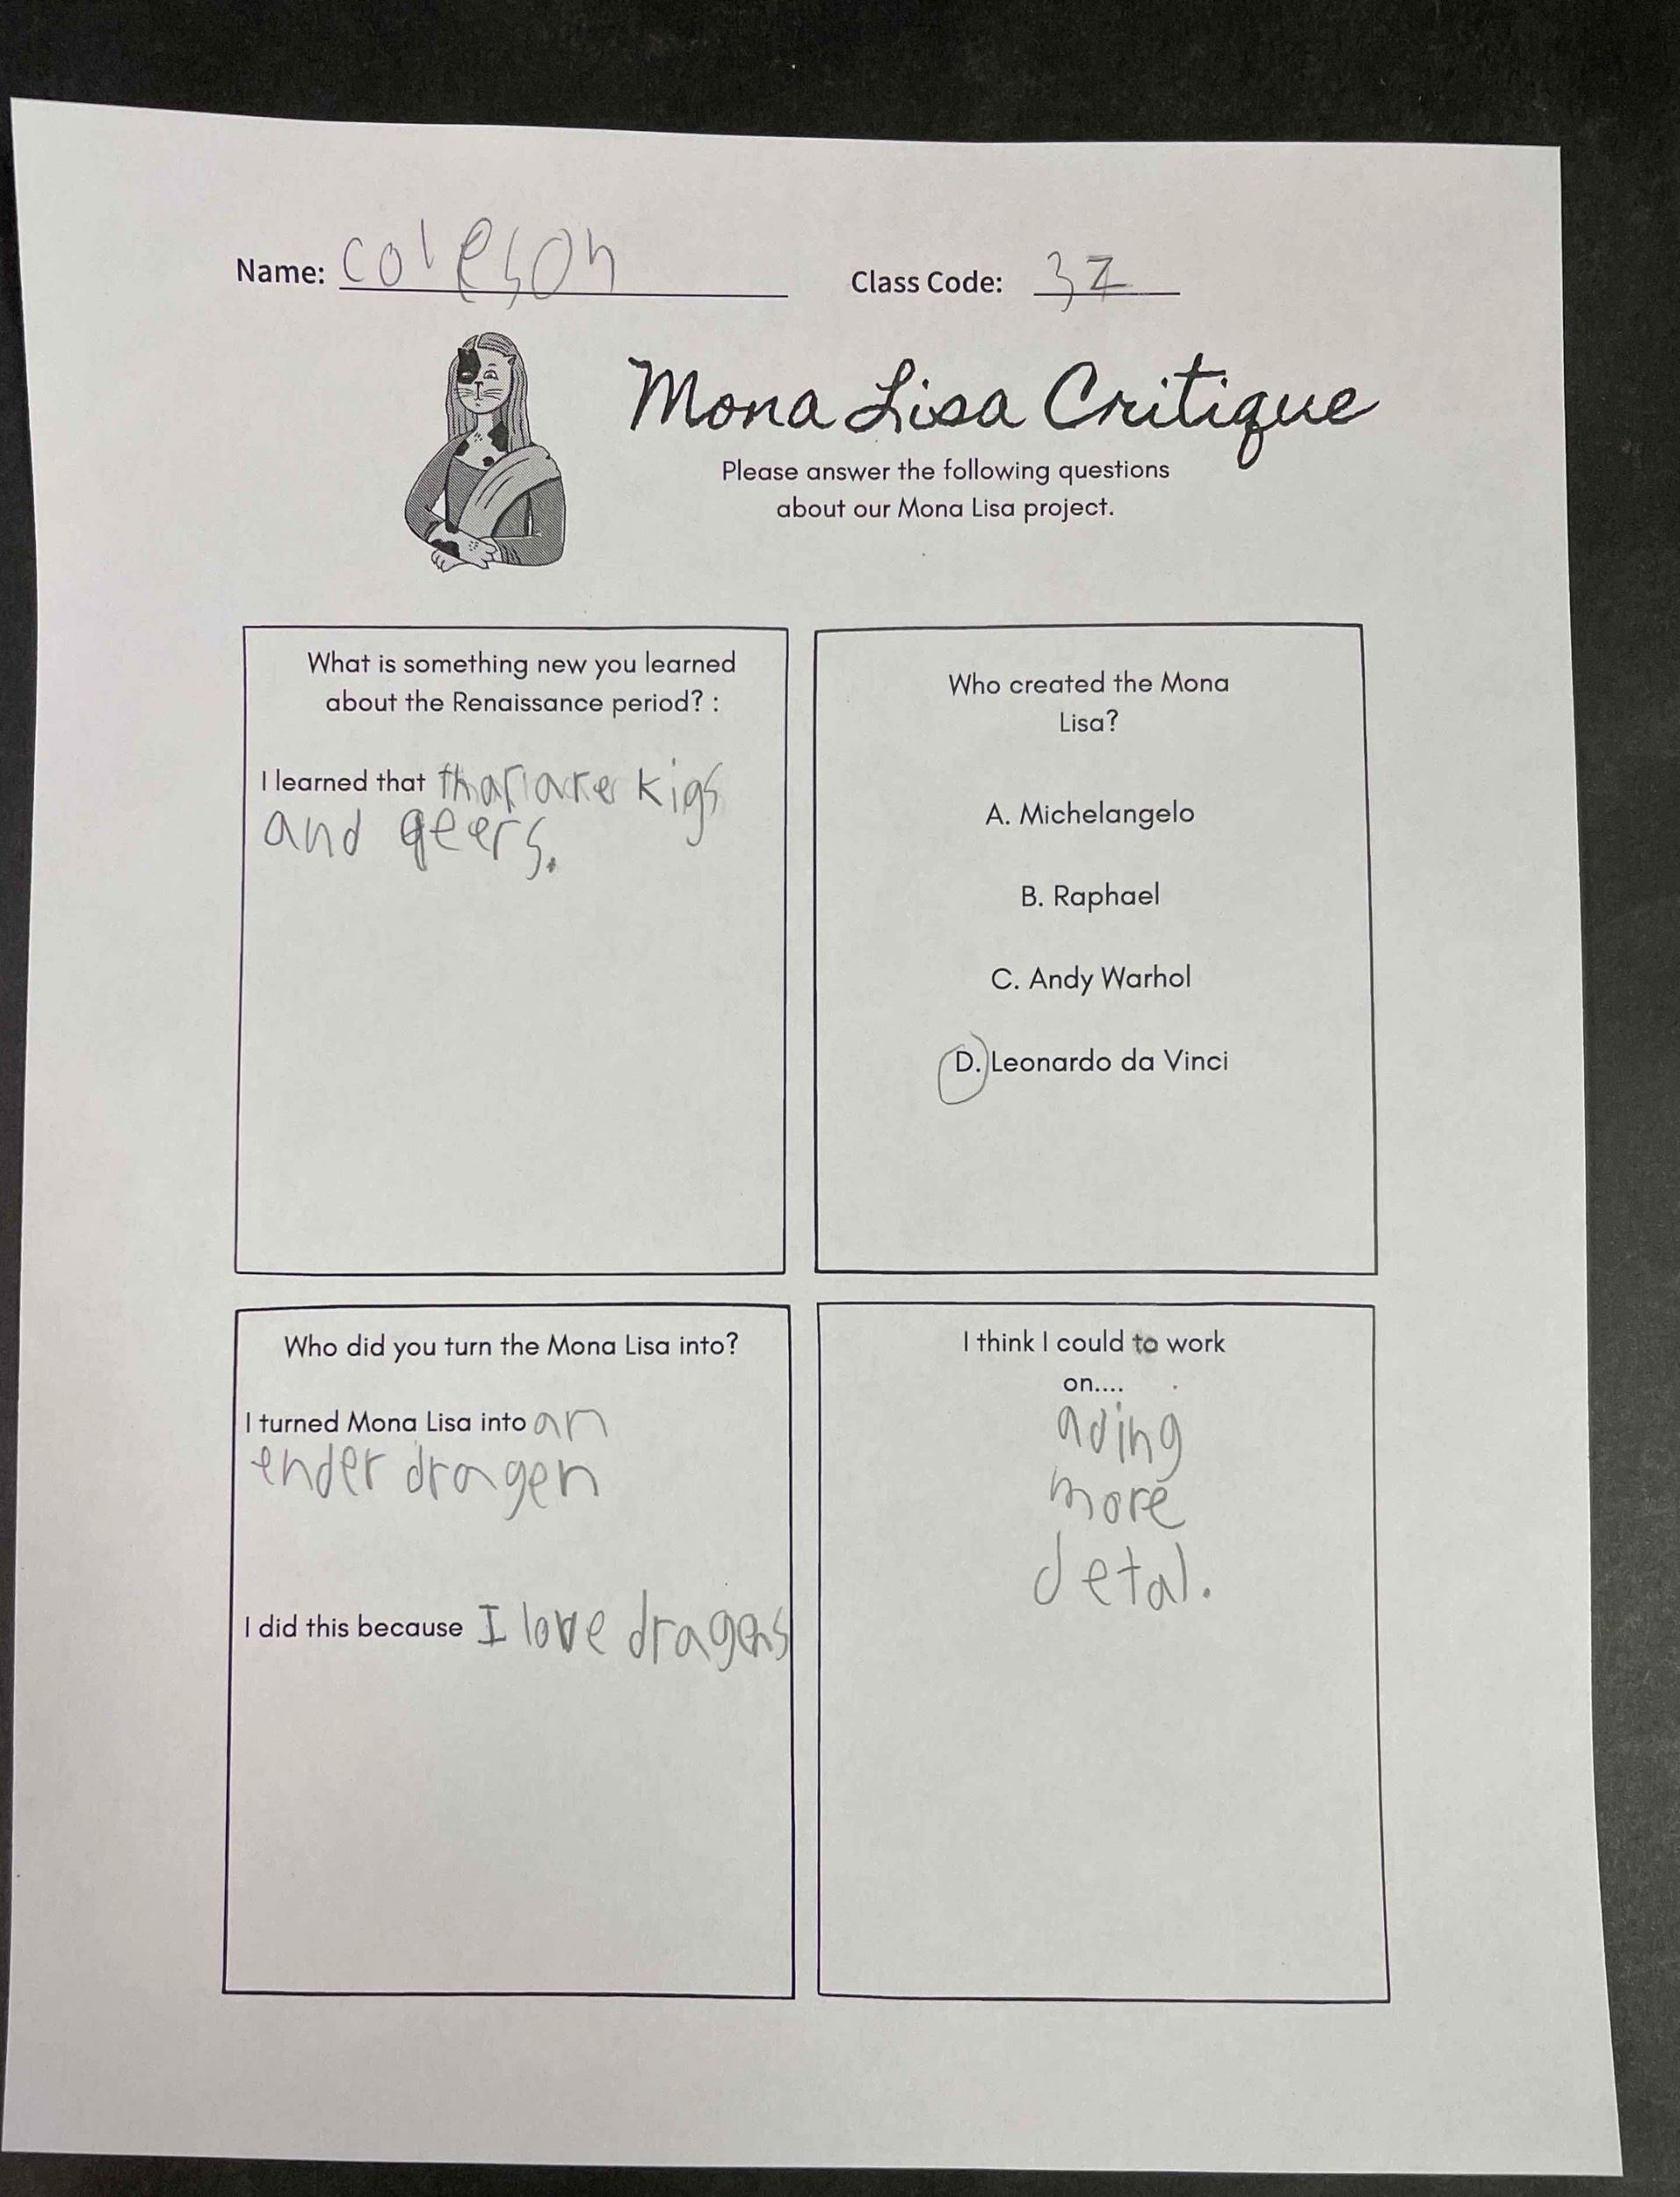 Name: coleson Class Code: 3Z
Mona Lisa Critique
Please answer the following questions
about our Mona Lisa project.
What is something new you learned
about the Renaissance period? :
I learned that kigs
and qeers.
Who created the Mona
Lisa?
A. Michelangelo
B. Raphael
C. Andy Warhol
D. Leonardo da Vinci
Who did you turn the Mona Lisa into?
I turned Mona Lisa into an
ender dragen
I did this because I love dragens
I think I could to work
on....
ading
more
detal.